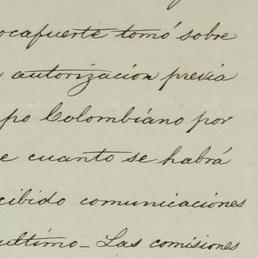 ocafuerte tomó sobre
autorizacion previa
po Colombiano por
e cuanto se habrá
cibido comunicaciones
ultimo - Las comisiones